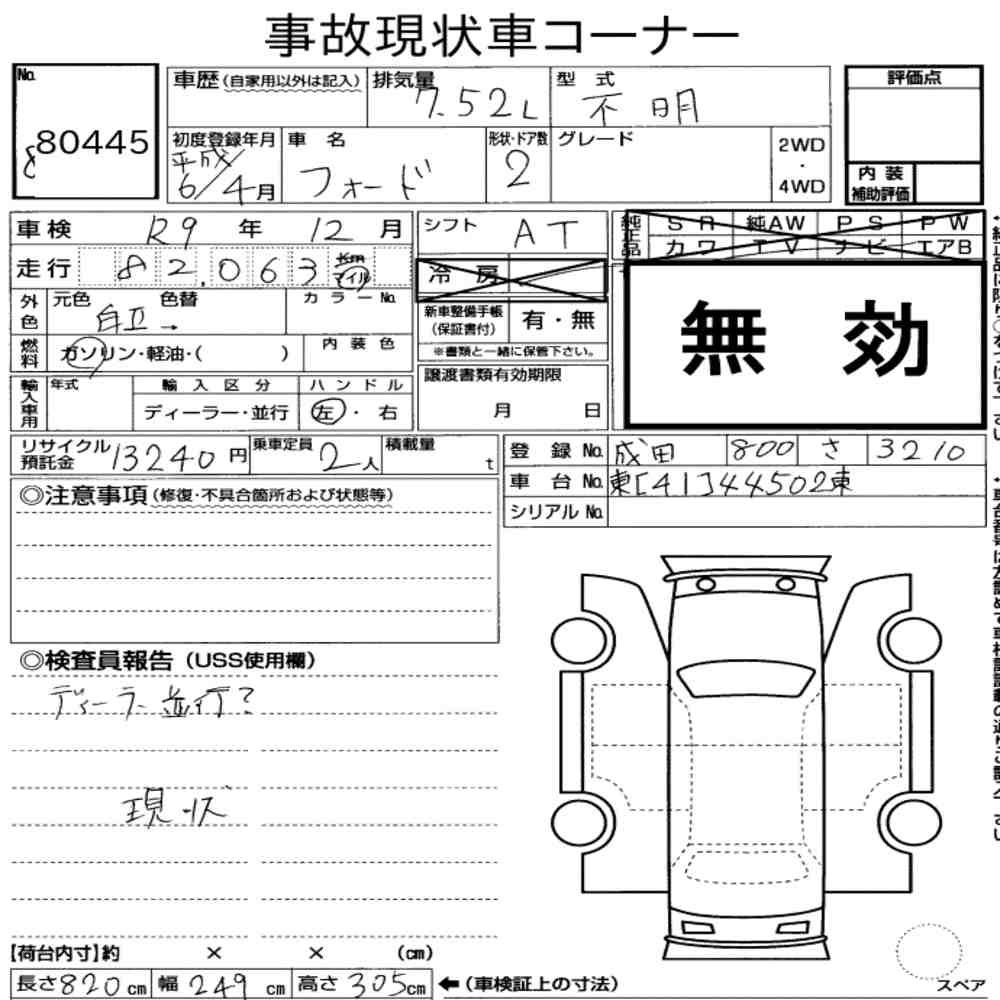 事故現状車コーナー
No.
80445
車歴(自家用以外は記入)
排気量
7.52L
型式
不明
評価点
初度登録年月
平成
6/4月
車名
フォード
形状・ドア数
2
グレード
2WD
・
4WD
内装
補助評価
車検 R9年 12月
シフト AT
純正品
SR 純AW PS PW
カワ TV ナビ エアB
走行 82,063 Km マイル
冷房
無効
外色
元色 色替
カラーNo.
新車整備手帳
(保証書付)
有・無
燃料
ガソリン・軽油・( )
内装色
※書類と一緒に保管下さい。
輸入車用
年式
輸入区分
ディーラー・並行
ハンドル
左・右
譲渡書類有効期限
月 日
リサイクル
預託金
13240円
乗車定員
2人
積載量
t
登録No. 成田 800 さ 3210
車台No. 東[41]44502東
シリアルNo.
◎注意事項(修復・不具合箇所および状態等)
◎検査員報告(USS使用欄)
ディーラー並行?
現状
【荷台内寸】約 × × (cm)
長さ820cm 幅249cm 高さ305cm
←(車検証上の寸法)
スペア